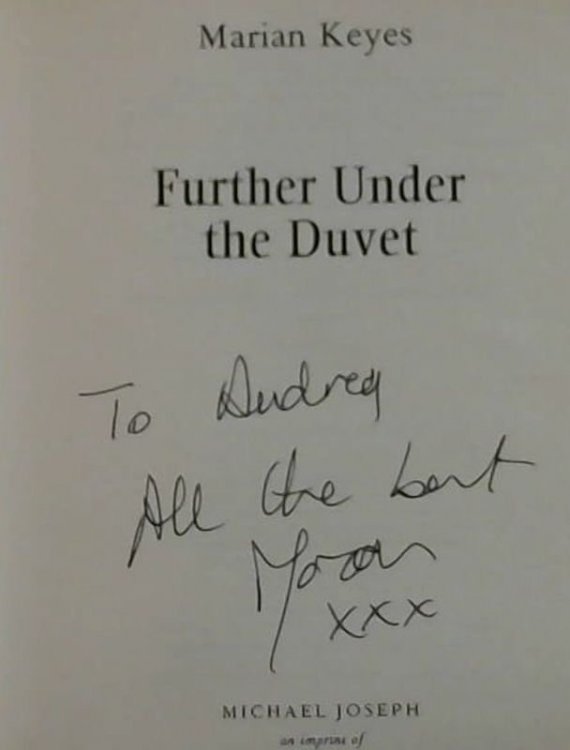 Marian Keyes
Further Under
the Duvet
To Audrey
All the best
Marian
xxx
MICHAEL JOSEPH
an imprint of